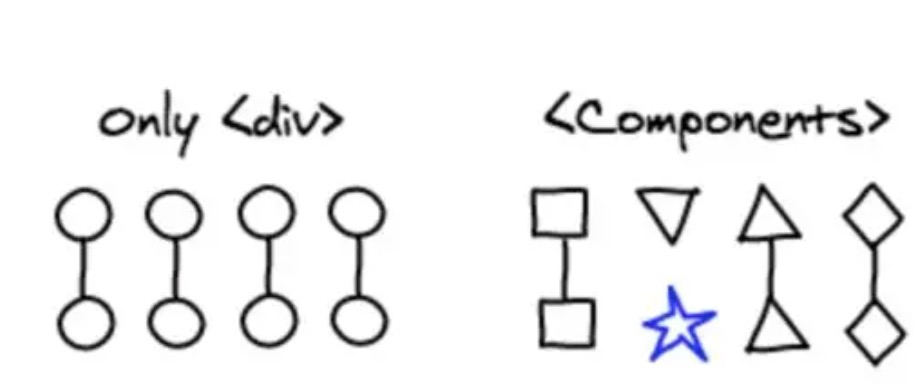 only <div>
<Components>